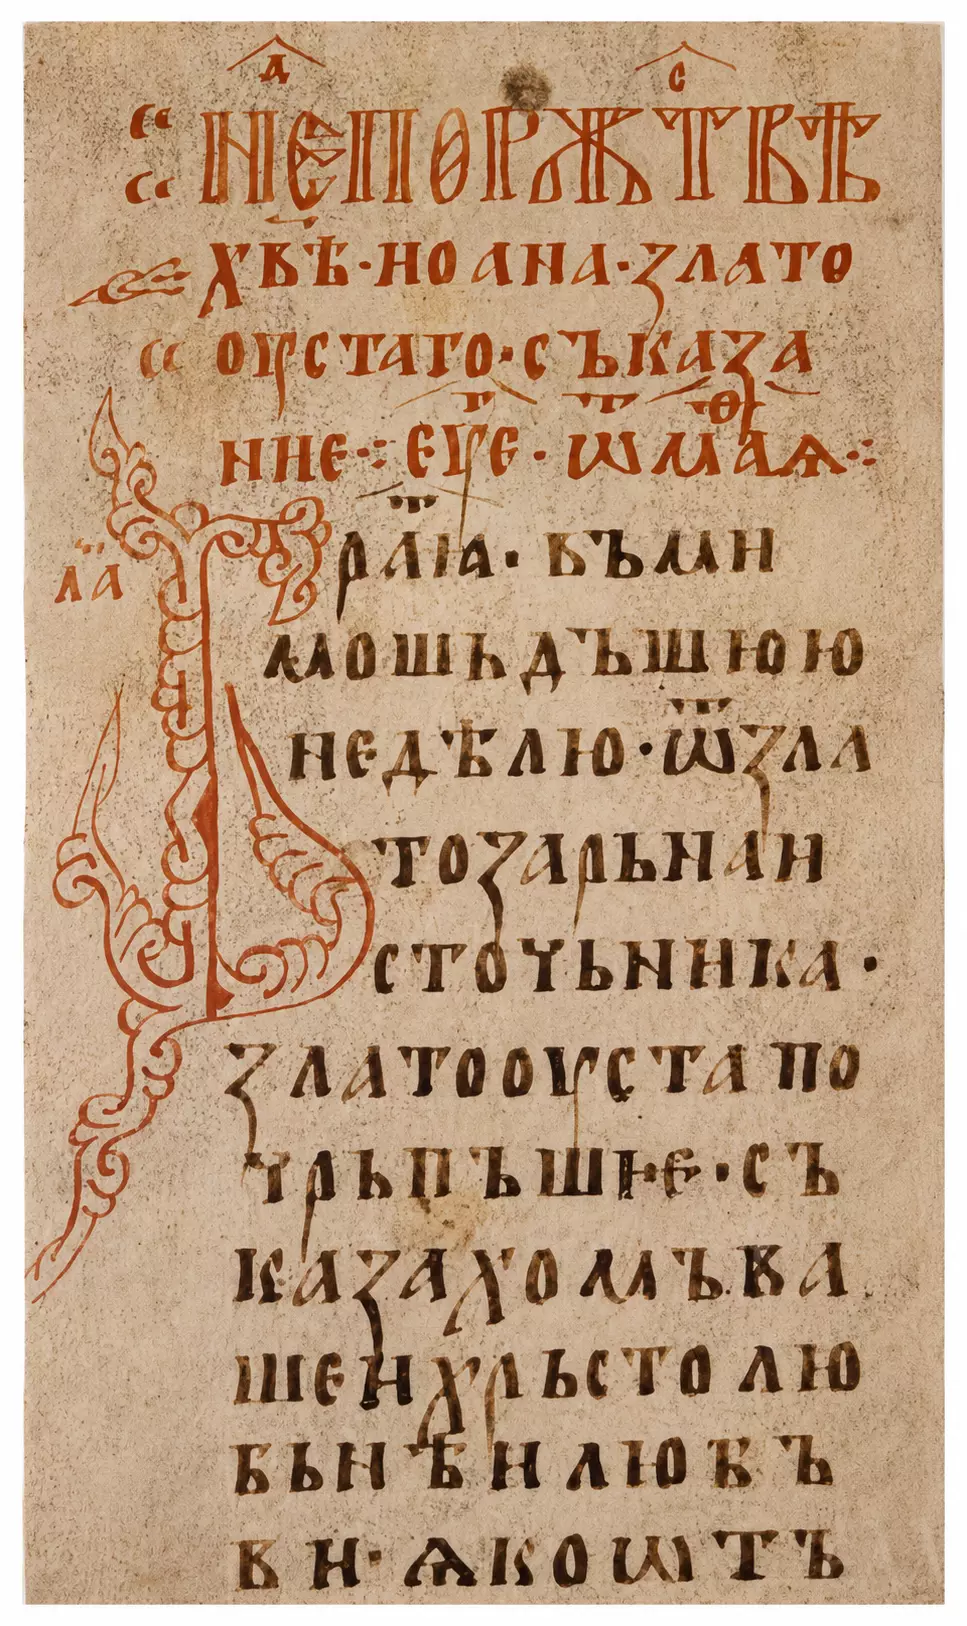 НЕⷣ ПО РЖⷭТВѢ
ХВѢ·ИОАНА·ЗЛАТО
ОУСТАГО·СЪКАЗА
НИЕ·:· ЕУⷢЕ · Ѿ МАⷴѲЕꙖ·:·
ЛА҃
БРАТИꙖ· ВЪ МИ
МОШЬДЪШЮЮ
НЕДѢЛЮ·Ѿ ЗЛА
ТОЗАРЬНА И
СТОЧЬНИКА·
ЗЛАТООУСТА ПО
ЧРЬПЪШЕ·СЪ
КАЗАХОМЪ ВА
ШЕИ ХРЬСТОЛЮ
БЬНѢИ ЛЮБЪ
ВИ·ѦКО ѾТЪ